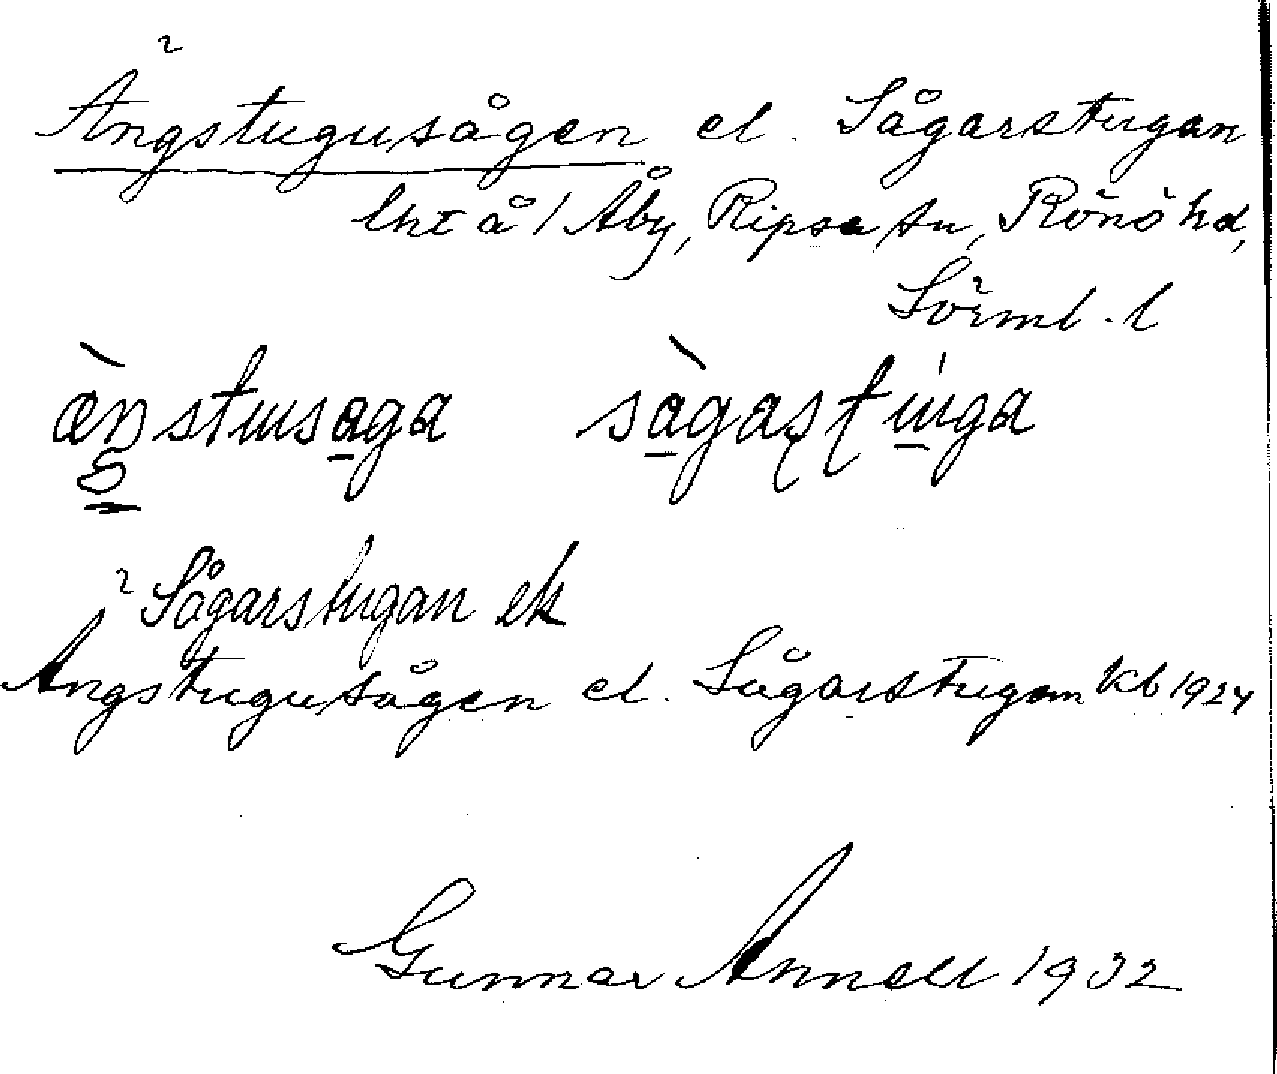 Ängstugusågen el. Sågarstugan
lht å 1 Åby, Ripsa sn, Rönö hd,
Sörml. l
Sågarstugan ek
Ängstugusågen el. Sågarstugan kb 1924
Gunnar Annell 1932